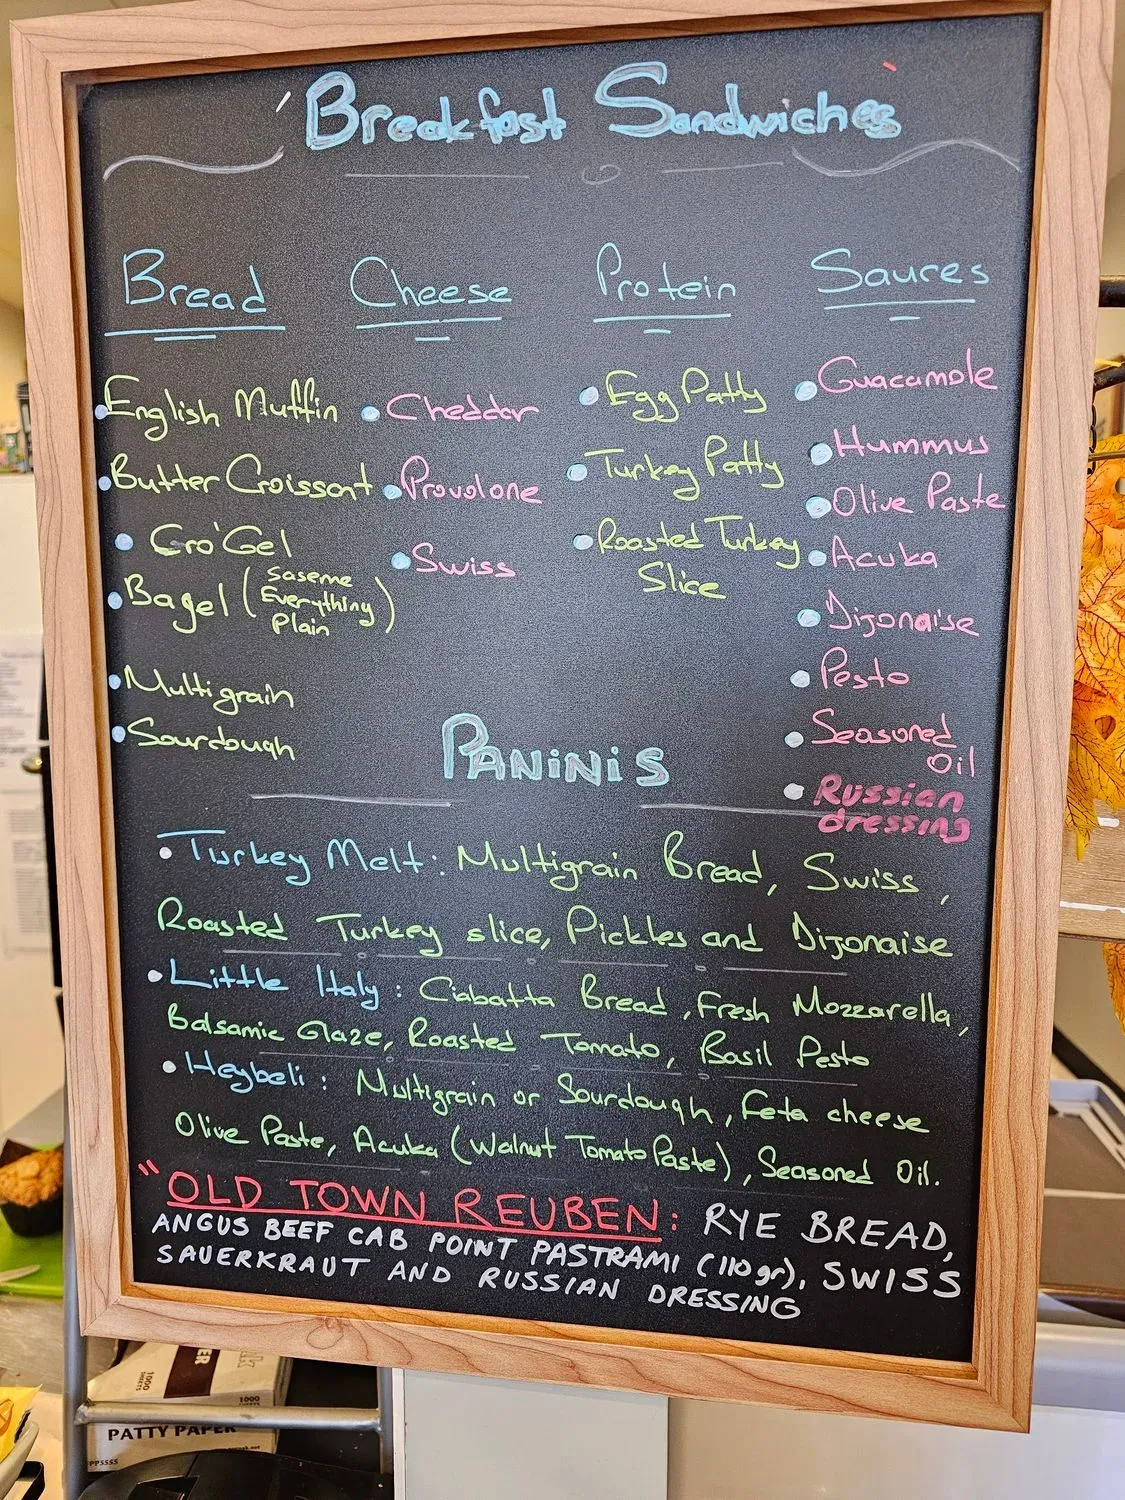 'Breakfast Sandwiches'
Bread
English Muffin
Butter Croissant
Cro'Gel
Bagel (Saseme
Everything
Plain)
Multigrain
Sourdough
Cheese
Cheddar
Provolone
Swiss
Protein
Egg Patty
Turkey Patty
Roasted Turkey
Slice
Sauces
Guacamole
Hummus
Olive Paste
Acuka
Dijonaise
Pesto
Seasoned
Oil
Russian
dressing
PANINIS
Turkey Melt: Multigrain Bread, Swiss,
Roasted Turkey slice, Pickles and Dijonaise
Little Italy: Ciabatta Bread, Fresh Mozzarella,
Balsamic Glaze, Roasted Tomato, Basil Pesto
Heybeli: Multigrain or Sourdough, Feta cheese
Olive Paste, Acuka (Walnut Tomato Paste), Seasoned Oil.
"OLD TOWN REUBEN: RYE BREAD,
ANGUS BEEF CAB POINT PASTRAMI (110gr), SWISS
SAUERKRAUT AND RUSSIAN DRESSING
1000
1000
PATTY PAPER